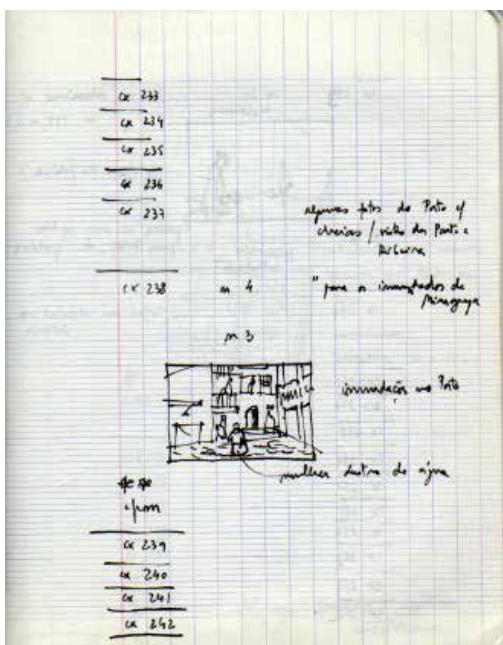 cx 233
cx 234
cx 235
cx 236
cx 237
algumas fotos do Porto c/
cheias / vistas do Porto e
Ribeira
cx 238 n 4 " para os inundados de
Miragaya
n 3
inundações no Porto
mulher dentro de água
cx 239
cx 240
cx 241
cx 242